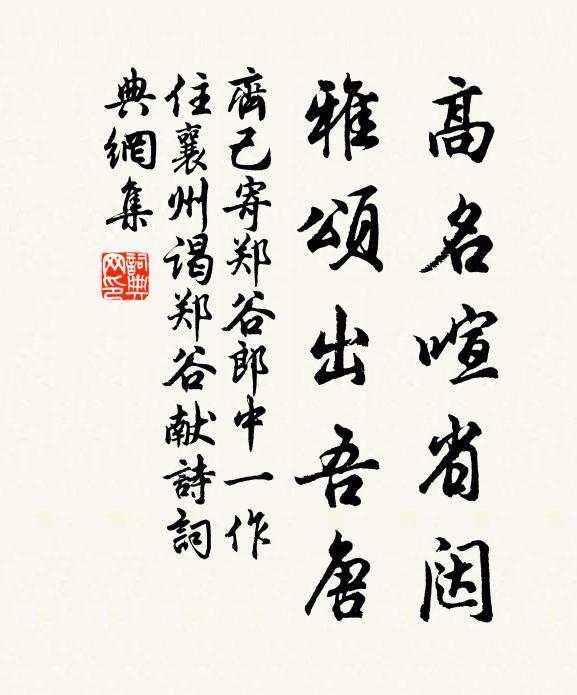 高名喧省闼
雅頌出吾唐
齊己寄郑谷郎中一作
住襄州谒郑谷献詩詞
典網集
詞典網印